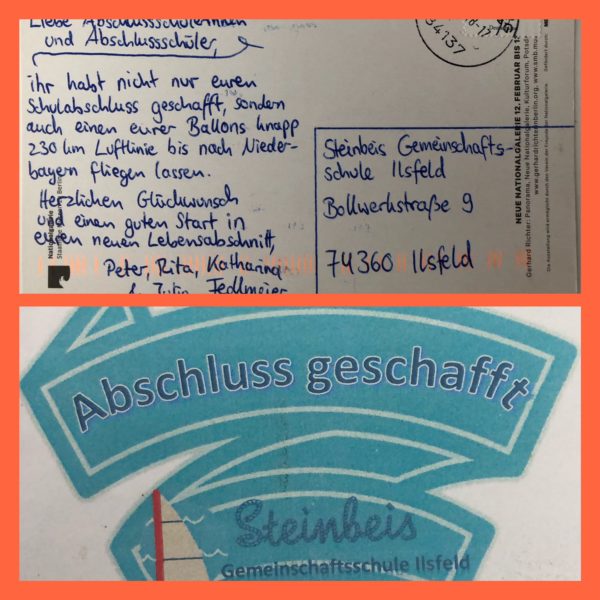 Liebe Abschlussschülerinnen
und Abschlussschüler,
ihr habt nicht nur euren
Schulabschluss geschafft, sondern
auch einen eurer Ballons knapp
230 km Luftlinie bis nach Nieder-
bayern fliegen lassen.
Herzlichen Glückwunsch
und einen guten Start in
euren neuen Lebensabschnitt,
Peter, Rita, Katharina
& Julia Fedlmeier
Nationalgalerie
Staatliche Museen Berlin
34137
Steinbeis Gemeinschafts-
schule Ilsfeld
Bollwerkstraße 9
74360 Ilsfeld
NEUE NATIONALGALERIE 12. FEBRUAR BIS 13.
Gerhard Richter: Panorama, Neue Nationalgalerie, Kulturforum, Potsda
www.gerhardrichterinberlin.org, www.smb.mus
Abschluss geschafft
Steinbeis
Gemeinschaftsschule Ilsfeld